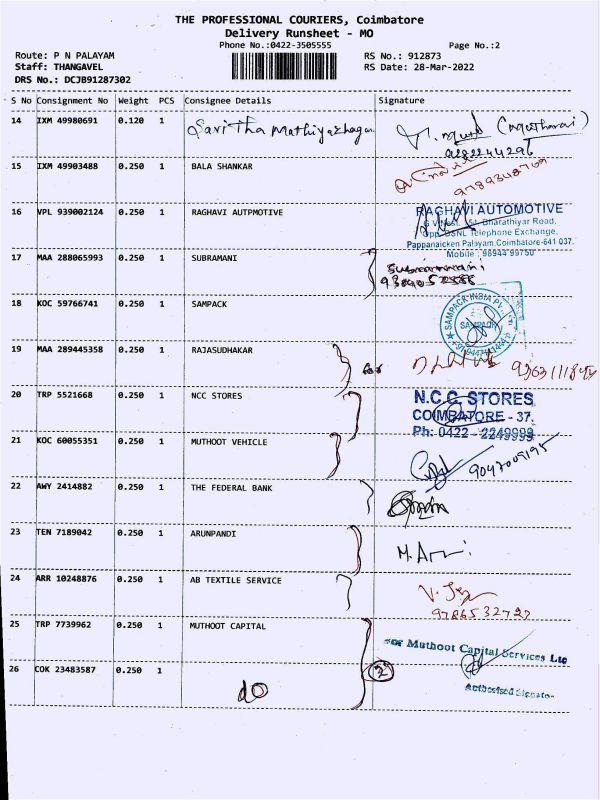 THE PROFESSIONAL COURIERS, Coimbatore
Delivery Runsheet - MO
Phone No.:0422-3505555
Page No.:2
Route: P N PALAYAM
RS No.: 912873
Staff: THANGAVEL
RS Date: 28-Mar-2022
DRS No.: DCJB91287302
S No Consignment No Weight PCS Consignee Details Signature
14 IXM 49980691 0.120 1 Savitha Mathiyazhagan
9282244296
15 IXM 49903488 0.250 1 BALA SHANKAR
9789348769
16 VPL 939002124 0.250 1 RAGHAVI AUTPMOTIVE
RAGHAVI AUTOMOTIVE
Bharathiyar Road,
Opp. BSNL Telephone Exchange,
Pappanaicken Palayam, Coimbatore-641 037.
Mobile : 98944 99750
17 MAA 288065993 0.250 1 SUBRAMANI
Subramani
18 KOC 59766741 0.250 1 SAMPACK
SAMPACK INDIA
SAMPACK
19 MAA 289445358 0.250 1 RAJASUDHAKAR
20 TRP 5521668 0.250 1 NCC STORES
N.C.C. STORES
COIMBATORE - 37.
Ph: 0422 - 2249999
21 KOC 60055351 0.250 1 MUTHOOT VEHICLE
9047009195
22 AWY 2414882 0.250 1 THE FEDERAL BANK
23 TEN 7189042 0.250 1 ARUNPANDI
24 ARR 10248876 0.250 1 AB TEXTILE SERVICE
9786532727
25 TRP 7739962 0.250 1 MUTHOOT CAPITAL
For Muthoot Capital Services Ltd
26 COK 23483587 0.250 1 do 2
Authorised Signator